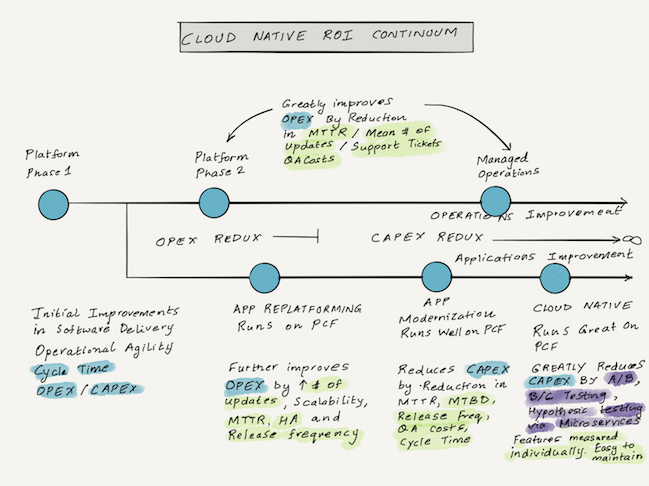 CLOUD NATIVE ROI CONTINUUM
Greatly improves
OPEX By Reduction
in MTTR / Mean # of
updates / Support Tickets
QA Costs
Platform
Phase 1
Platform
Phase 2
Managed
Operations
OPERATIONS Improvement
OPEX REDUX
CAPEX REDUX
∞
Applications Improvement
Initial Improvements
in Software Delivery
Operational Agility
Cycle Time
OPEX / CAPEX
APP REPLATFORMING
Runs on PCF
Further improves
OPEX by ↑ # of
updates, Scalability,
MTTR, HA and
Release frequency
APP
Modernization
Runs Well on PCF
Reduces CAPEX
by Reduction in
MTTR, MTBD,
Release Freq,
QA costs,
Cycle Time
CLOUD NATIVE
Runs Great On
PCF
GREATLY Reduces
CAPEX By A/B,
B/G Testing,
Hypothesis testing
via Microservices
Features measured
individually. Easy to
maintain